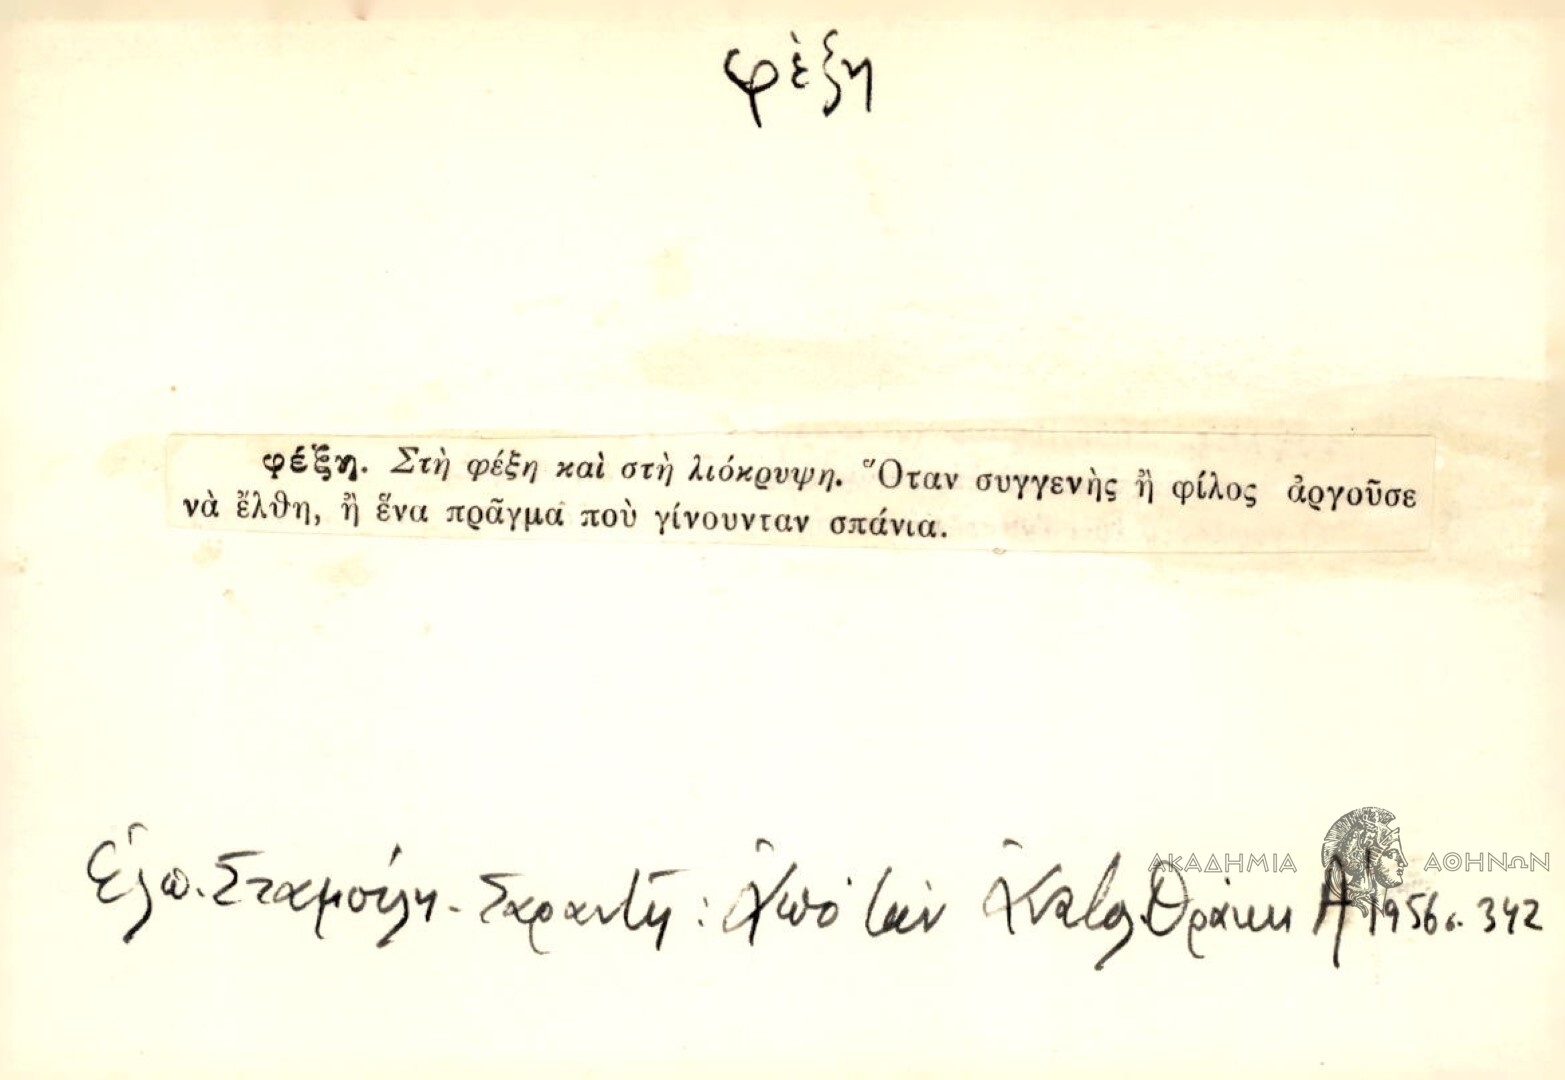 φὲξη
φέξη. Στὴ φέξη καὶ στὴ λιόκρυψη. Ὅταν συγγενὴς ἢ φίλος ἀργοῦσε
νὰ ἔλθη, ἢ ἕνα πρᾶγμα ποὺ γίνουνταν σπάνια.
ΑΚΑΔΗΜΙΑ ΑΘΗΝΩΝ
Ἐλπ. Σταμούλη - Σαραντῆ : Ἀπὸ τὴν Ἀνατολ. Θράκη Α' 1956 σ. 342